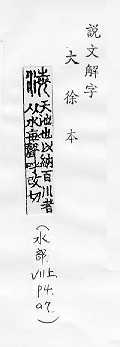 說文解字
大徐本
海 天池也以納百川者
从水每聲呼改切
(水部 VII上. P4. 97.)